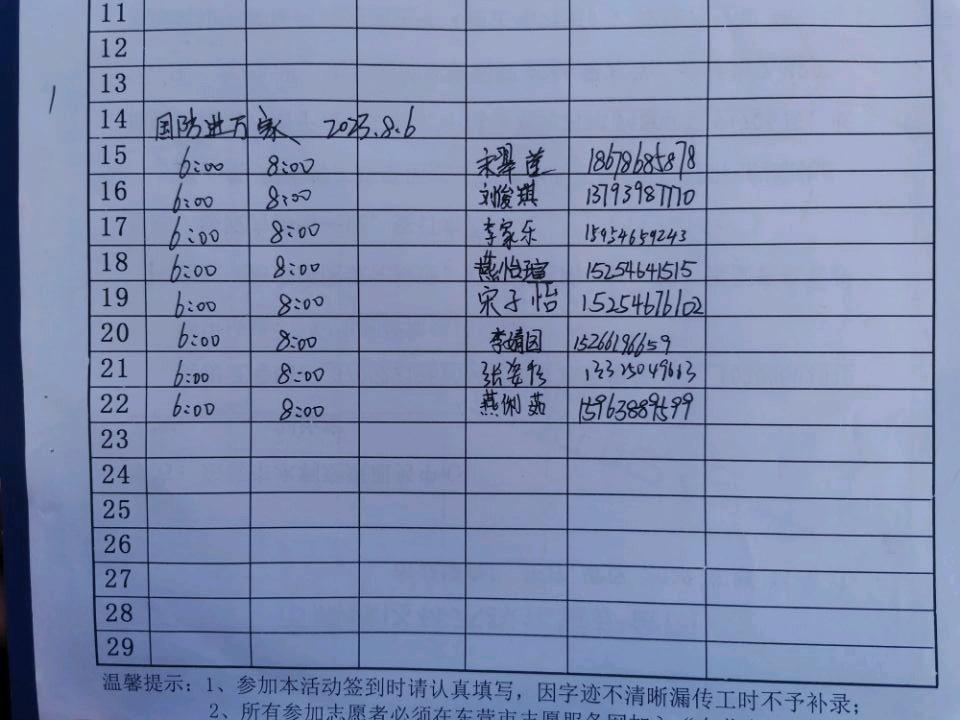 11
12
13
14 国防进万家 2023.8.6
15 6:00 8:00 宋翠莲 18678685878
16 6:00 8:00 刘俊琪 13793987770
17 6:00 8:00 李家乐 15954659243
18 6:00 8:00 燕怡瑄 15254641515
19 6:00 8:00 宋子怡 15254676102
20 6:00 8:00 李婧因 15266196659
21 6:00 8:00
22 6:00 8:00 15963889599
23
24
25
26
27
28
29
温馨提示:1、参加本活动签到时请认真填写,因字迹不清晰漏传工时不予补录;
2、所有参加志愿者必须在东营市志愿服务网加入“